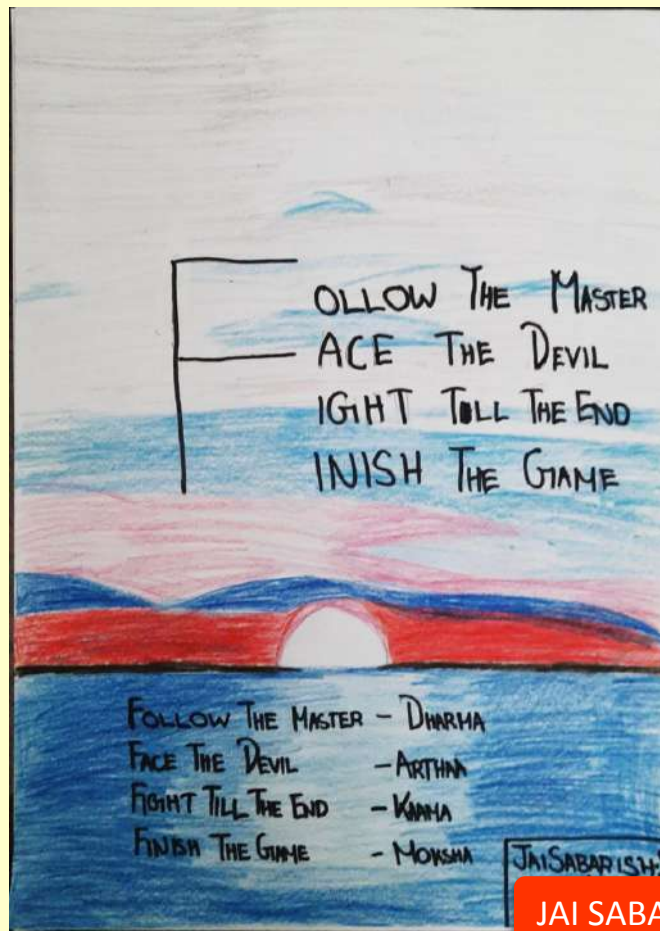 F
OLLOW THE MASTER
ACE THE DEVIL
IGHT TILL THE END
INISH THE GAME
FOLLOW THE MASTER - DHARMA
FACE THE DEVIL - ARTHAA
FIGHT TILL THE END - KAAMA
FINISH THE GAME - MOKSHA
JAI SABARISH
JAI SABA